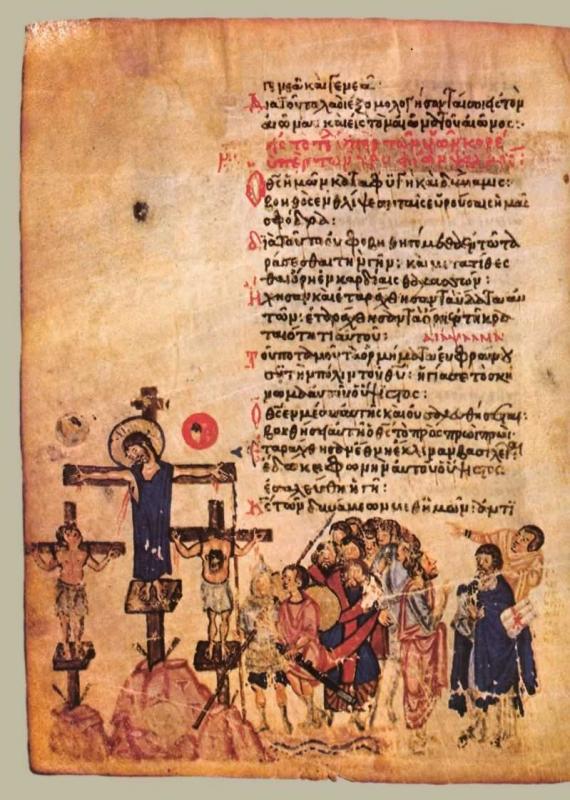 γενεᾷ καὶ γενεᾷ
Διατοῦτο λαοὶ ἐξομολογήσονταί σοι εἰς τὸν
αἰῶνα καὶ εἰς τὸν αἰῶνα τοῦ αἰῶνος:
εἰς τὸ τέλος ὑπὲρ τῶν υἱῶν κορέ
ὑπὲρ τῶν κρυφίων ψαλμός:
Ὁ θς ἡμῶν καταφυγὴ καὶ δύναμις:
βοηθὸς ἐν θλίψεσι ταῖς εὑρούσαις ἡμᾶς
σφόδρα:
διατοῦτο οὐ φοβηθησόμεθα ἐν τῷ τα
ράσσεσθαι τὴν γῆν: καὶ μετατίθεσ
θαι ὄρη ἐν καρδίαις θαλασσῶν:
Ἤχησαν καὶ ἐταράχθησαν τὰ ὕδατα αὐ
τῶν: ἐταράχθησαν τὰ ὄρη ἐν τῇ κρα
ταιότητι αὐτοῦ: διάψαλμα
Τοῦ ποταμοῦ τὰ ὁρμήματα εὐφραίνου
σι τὴν πόλιν τοῦ θυ: ἡγίασε τὸ σκή
νωμα αὐτοῦ ὁ ὕψιστος:
Ὁ θς ἐν μέσῳ αὐτῆς καὶ οὐ σαλευθήσεται:
βοηθήσει αὐτῇ ὁ θς τὸ πρὸς πρωὶ πρωί
Ἐταράχθησαν ἔθνη ἔκλιναν βασιλεῖαι
ἔδωκε φωνὴν αὐτοῦ ὁ ὕψιστος
ἐσαλεύθη ἡ γῆ:
Κς τῶν δυνάμεων μεθ ἡμῶν: ἀντι